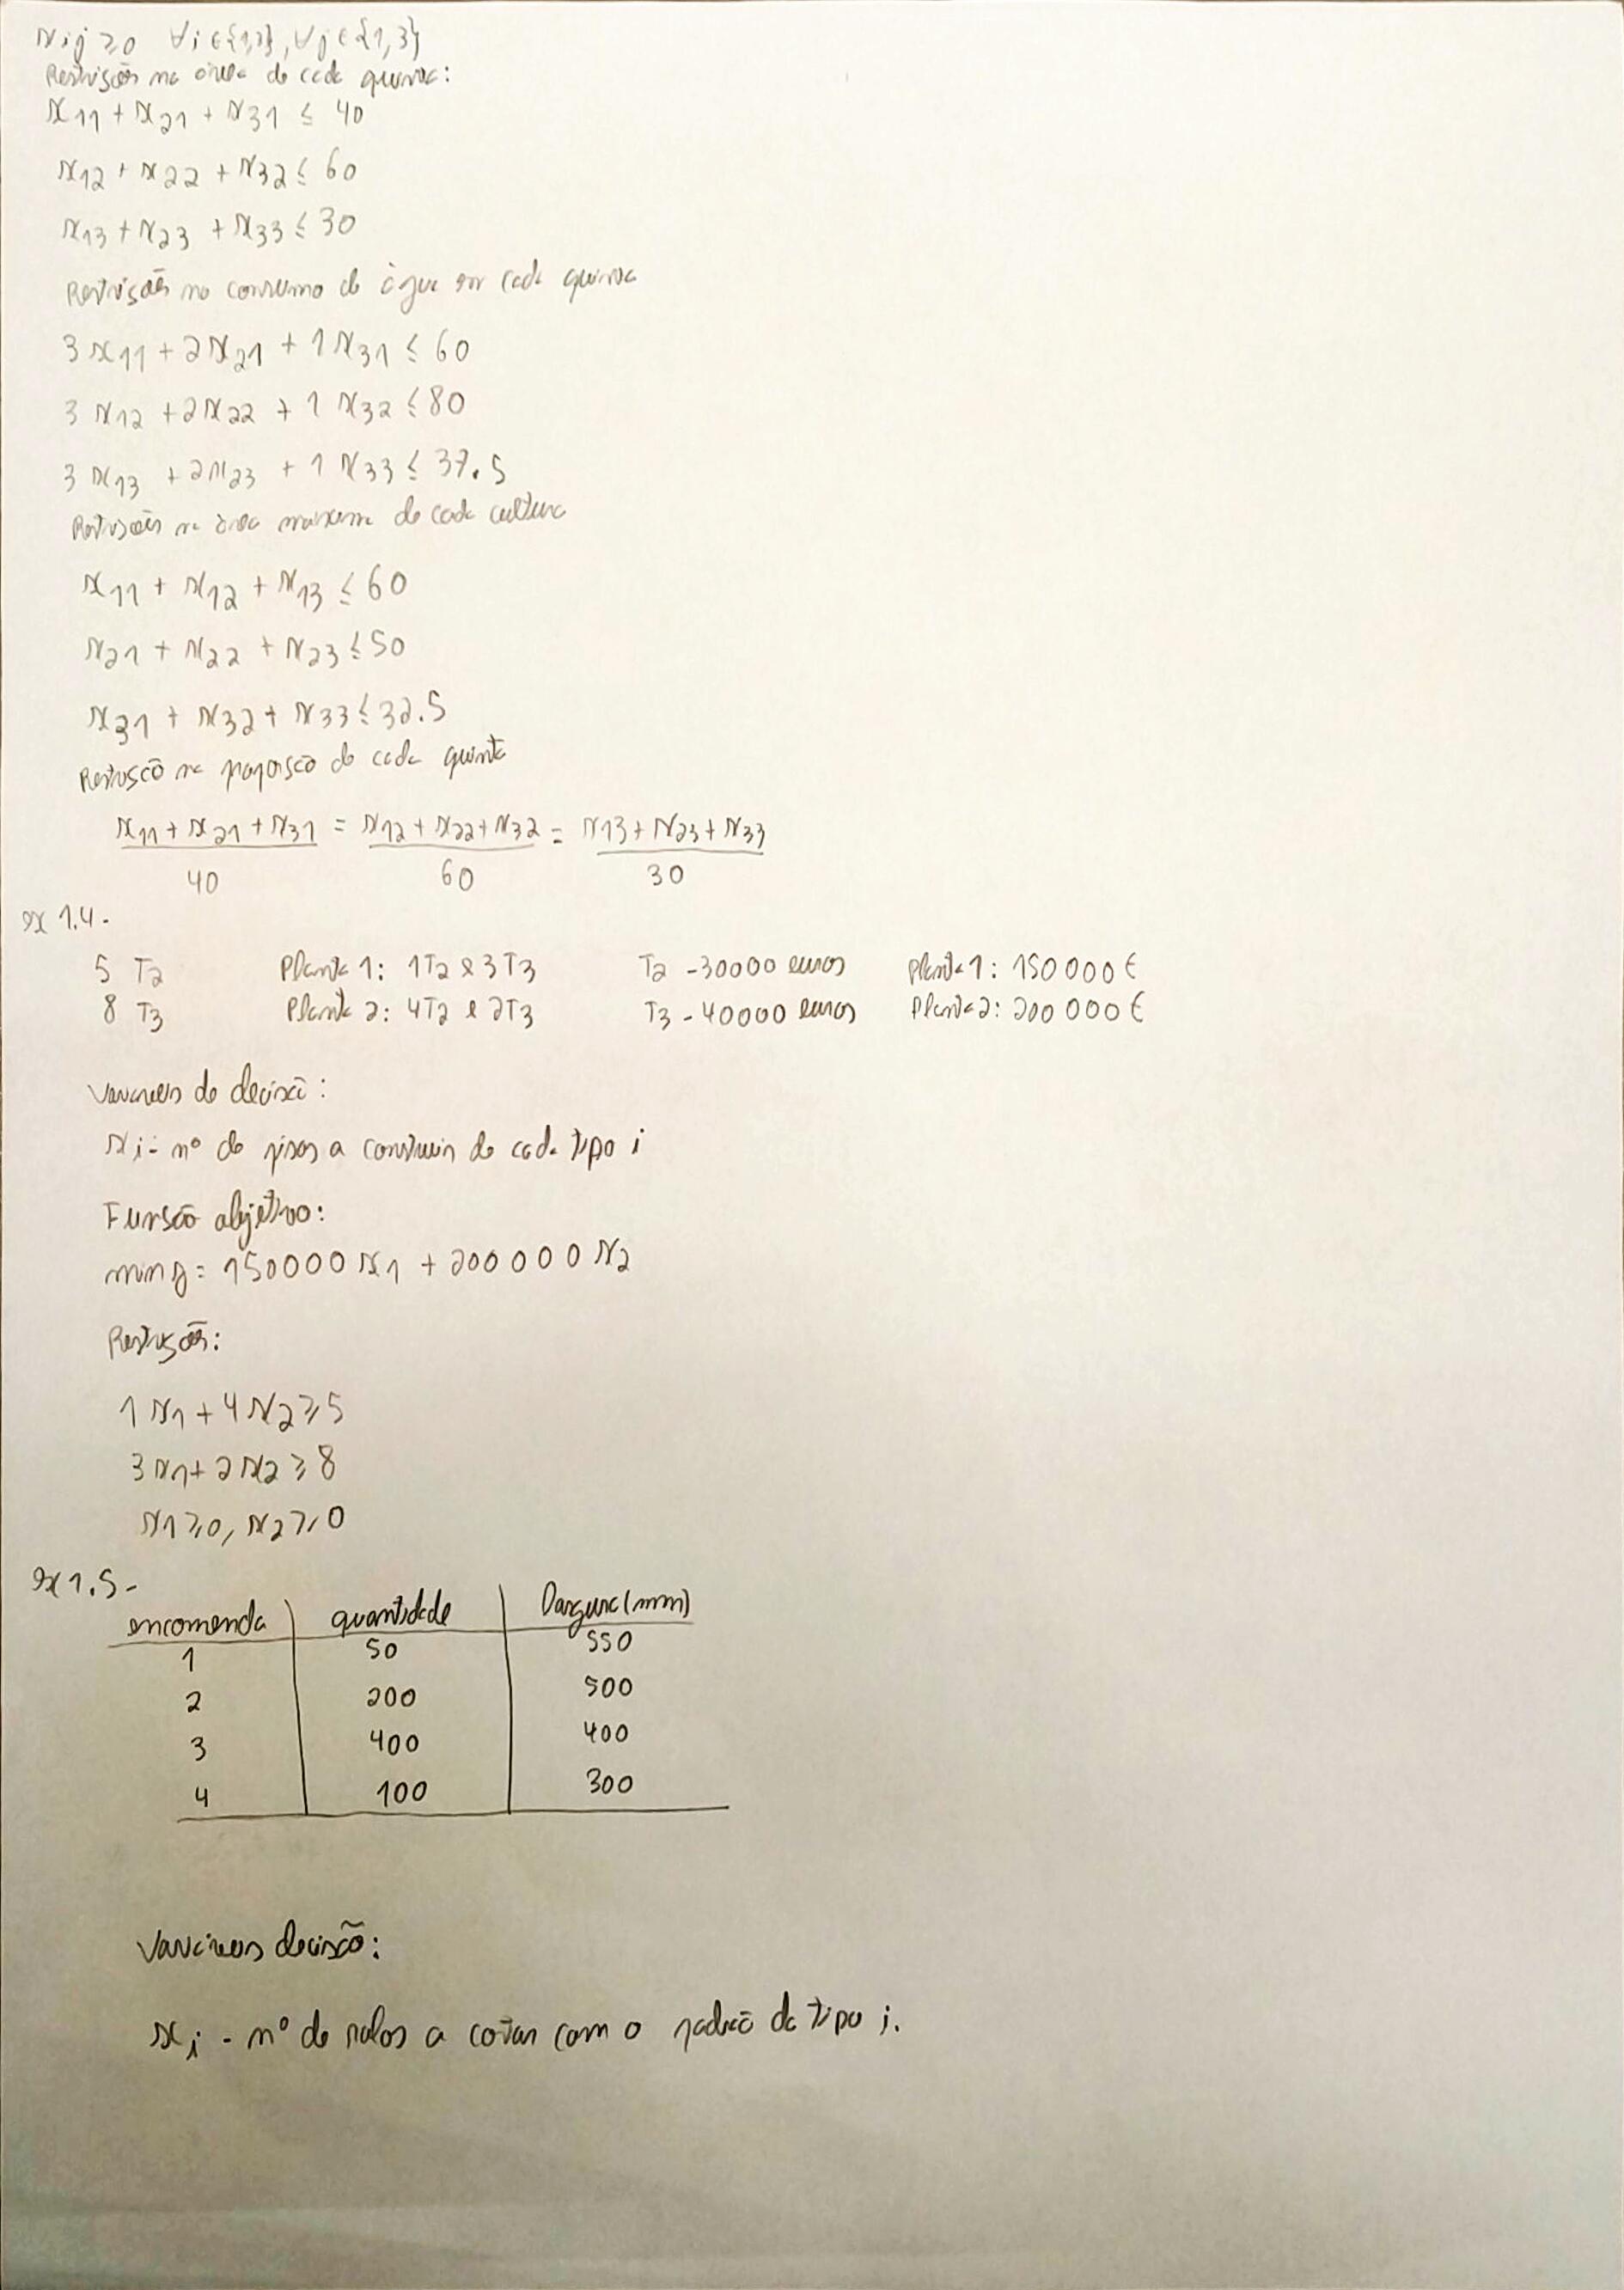 xij ≥ 0 ∀i ∈ {1,3}, ∀j ∈ {1,3}
Restrisões na área de cada quinta:
x11 + x21 + x31 ≤ 40
x12 + x22 + x32 ≤ 60
x13 + x23 + x33 ≤ 30
Restrisões no consumo de àgua em cada quinta
3 x11 + 2x21 + 1x31 ≤ 60
3 x12 + 2x22 + 1 x32 ≤ 80
3 x13 + 2x23 + 1 x33 ≤ 37.5
Restrisões na área maxima de cada cultura
x11 + x12 + x13 ≤ 60
x21 + x22 + x23 ≤ 50
x31 + x32 + x33 ≤ 32.5
Restrisão na proporsão de cada quinta
x11 + x21 + x31 = x12 + x22 + x32 = x13 + x23 + x33
40 60 30
ex 1.4-
5 T2 Planta 1: 1T2 e 3T3 T2 - 30000 euros Planta 1: 150 000 €
8 T3 Planta 2: 4T2 e 2T3 T3 - 40000 euros Planta 2: 200 000 €
Variaveis de decisão:
xi - nº de pisos a construir de cada tipo i
Funsão objetivo:
min z = 150000 x1 + 200 000 x2
Restrisões:
1 x1 + 4 x2 ≥ 5
3 x1 + 2 x2 ≥ 8
x1 ≥ 0, x2 ≥ 0
ex 1.5-
encomenda quantidade Largura (mm)
1 50 550
2 200 500
3 400 400
4 100 300
Variáveis decisão:
xi - nº de rolos a cortar com o padrão do tipo i.